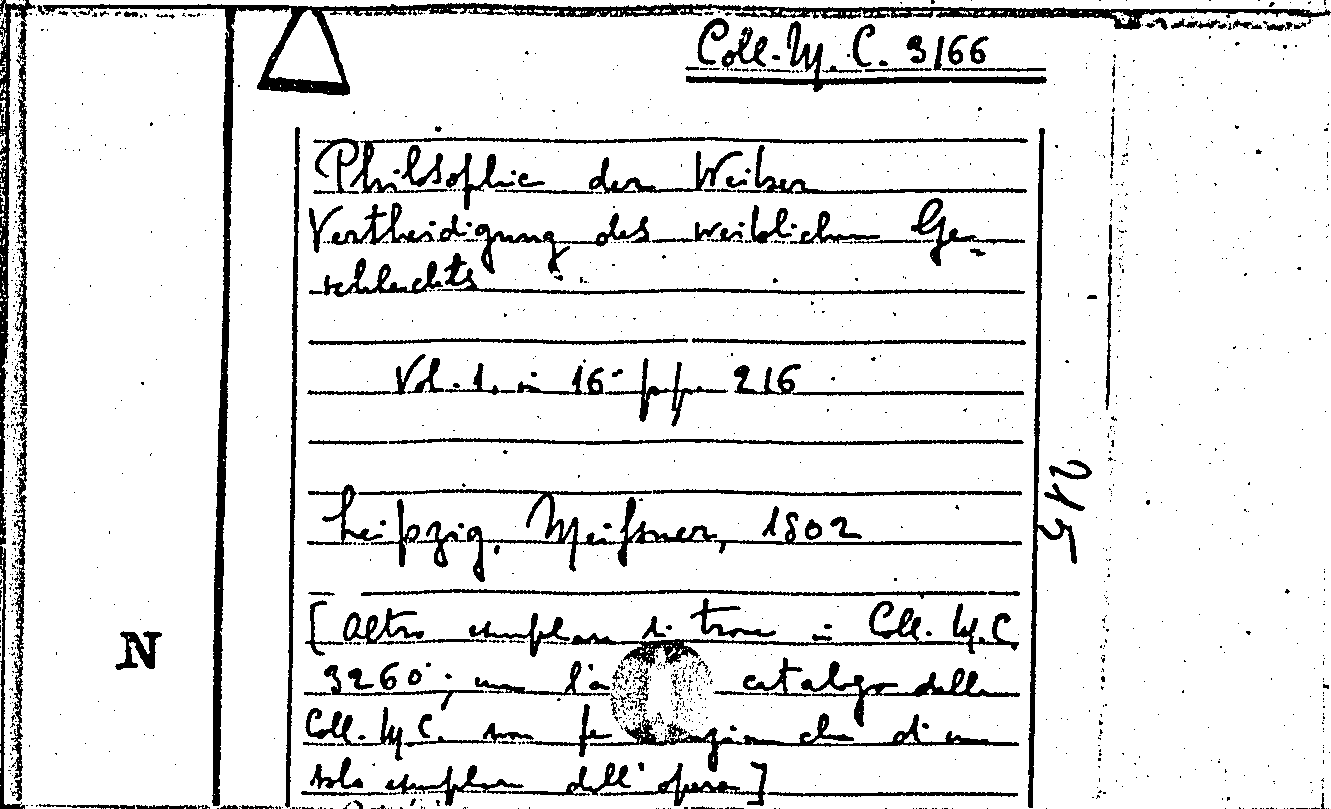 Coll. M. C. 3166
Philosophie der Weiber
Vertheidigung des weiblichen Ge-
schlechts
Vol. 1. in 16° pp. 216
215
Leipzig, Meißner, 1802
[Altro esemplare si trova in Coll. M.C.
N
3260; ma catalogo della
Coll. M.C. non che di un
solo esemplare dell'opera]